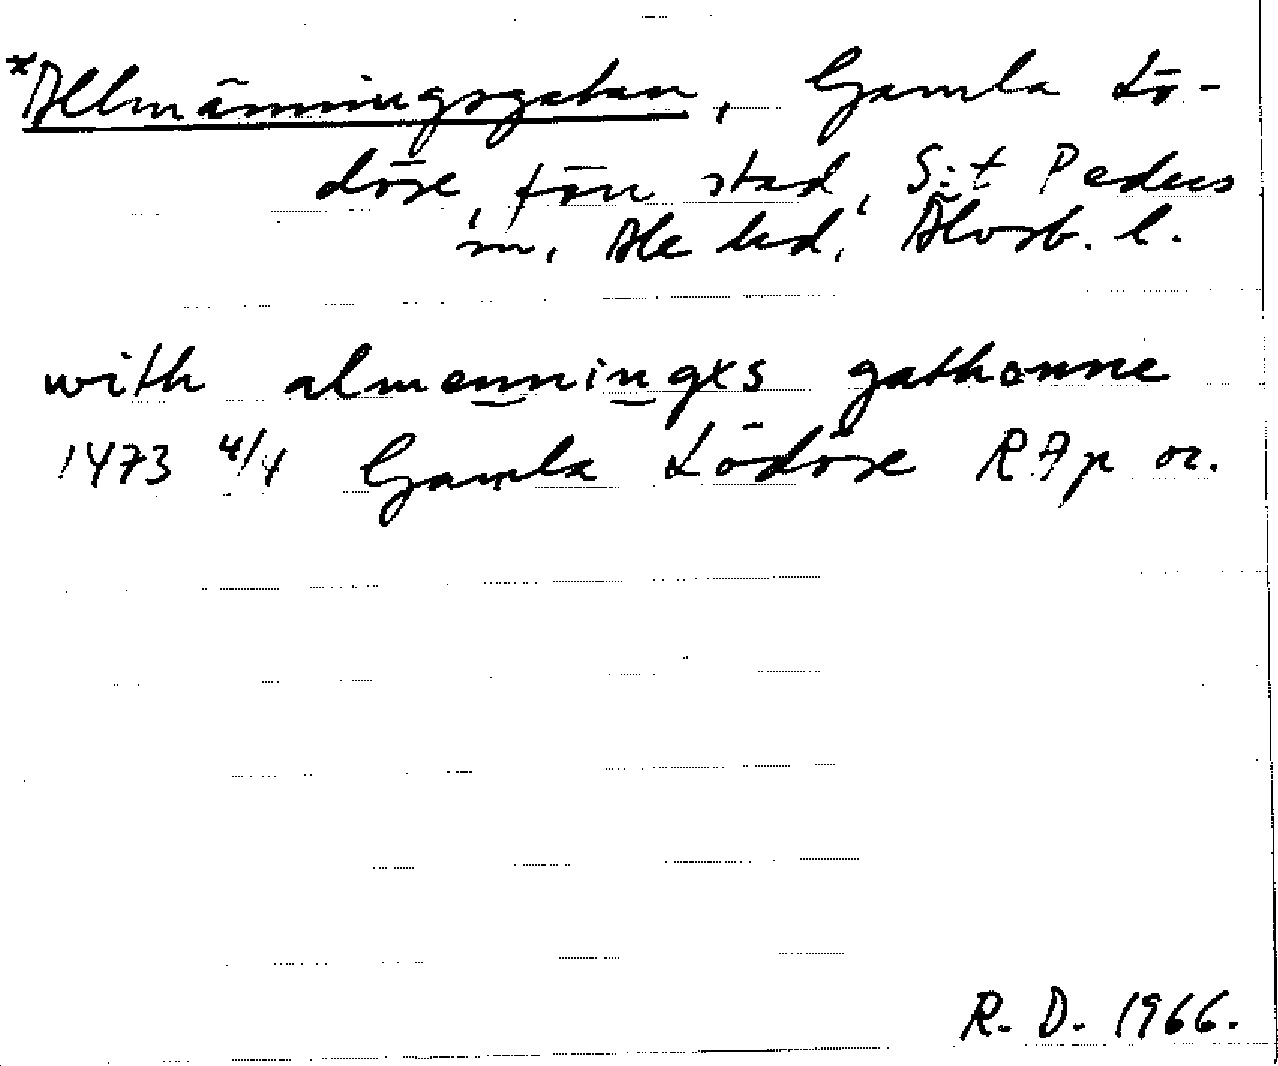 *Allmänningsgatan, Gamla Lö-
döse, förn stad, S:t Peders
sn, Ale hd, Älvsb. l.
with almenningxs gathonne
1473 4/4 Gamla Lödöse RAp or.
R. D. 1966.